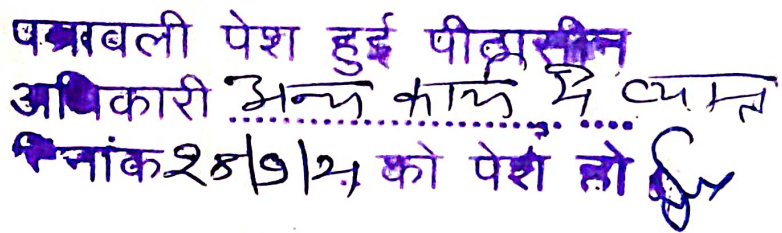 पत्रावली पेश हुई पीठासीन
अधिकारी अन्य कार्य में व्यस्त
दिनांक को पेश हो